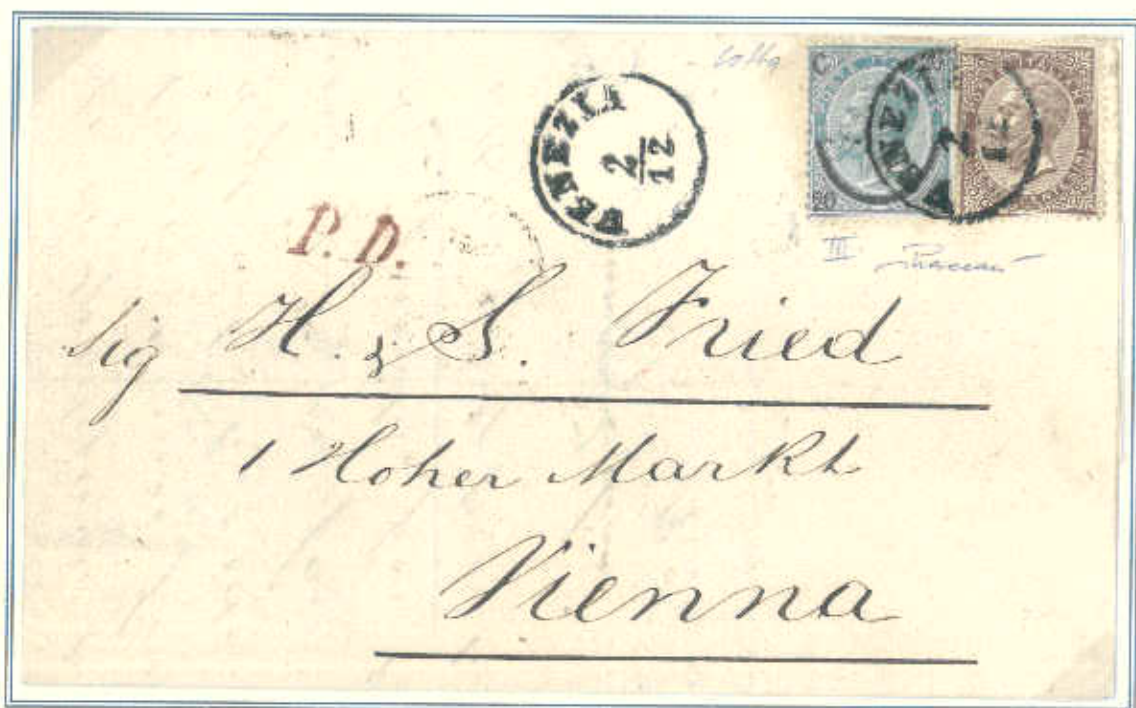 VENEZIA
2
12
C. 20
20
VENEZIA
2
12
P.D.
III
Sig H. & S. Fried
1 Hoher Markt
Vienna